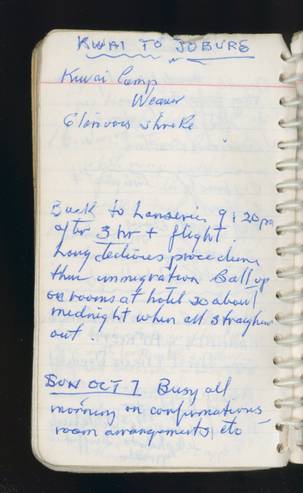 KWAI TO JOBURG
Kwai Camp
Weaver
Glorious shrike
Back to Lanseria 9:20 pm
after 3 hr + flight
Long tedious procedure
thru immigration Ball up
on rooms at hotel so about
midnight when all straighten
out.
SUN OCT 7 Busy all
morning on confirmations
room arrangements, etc